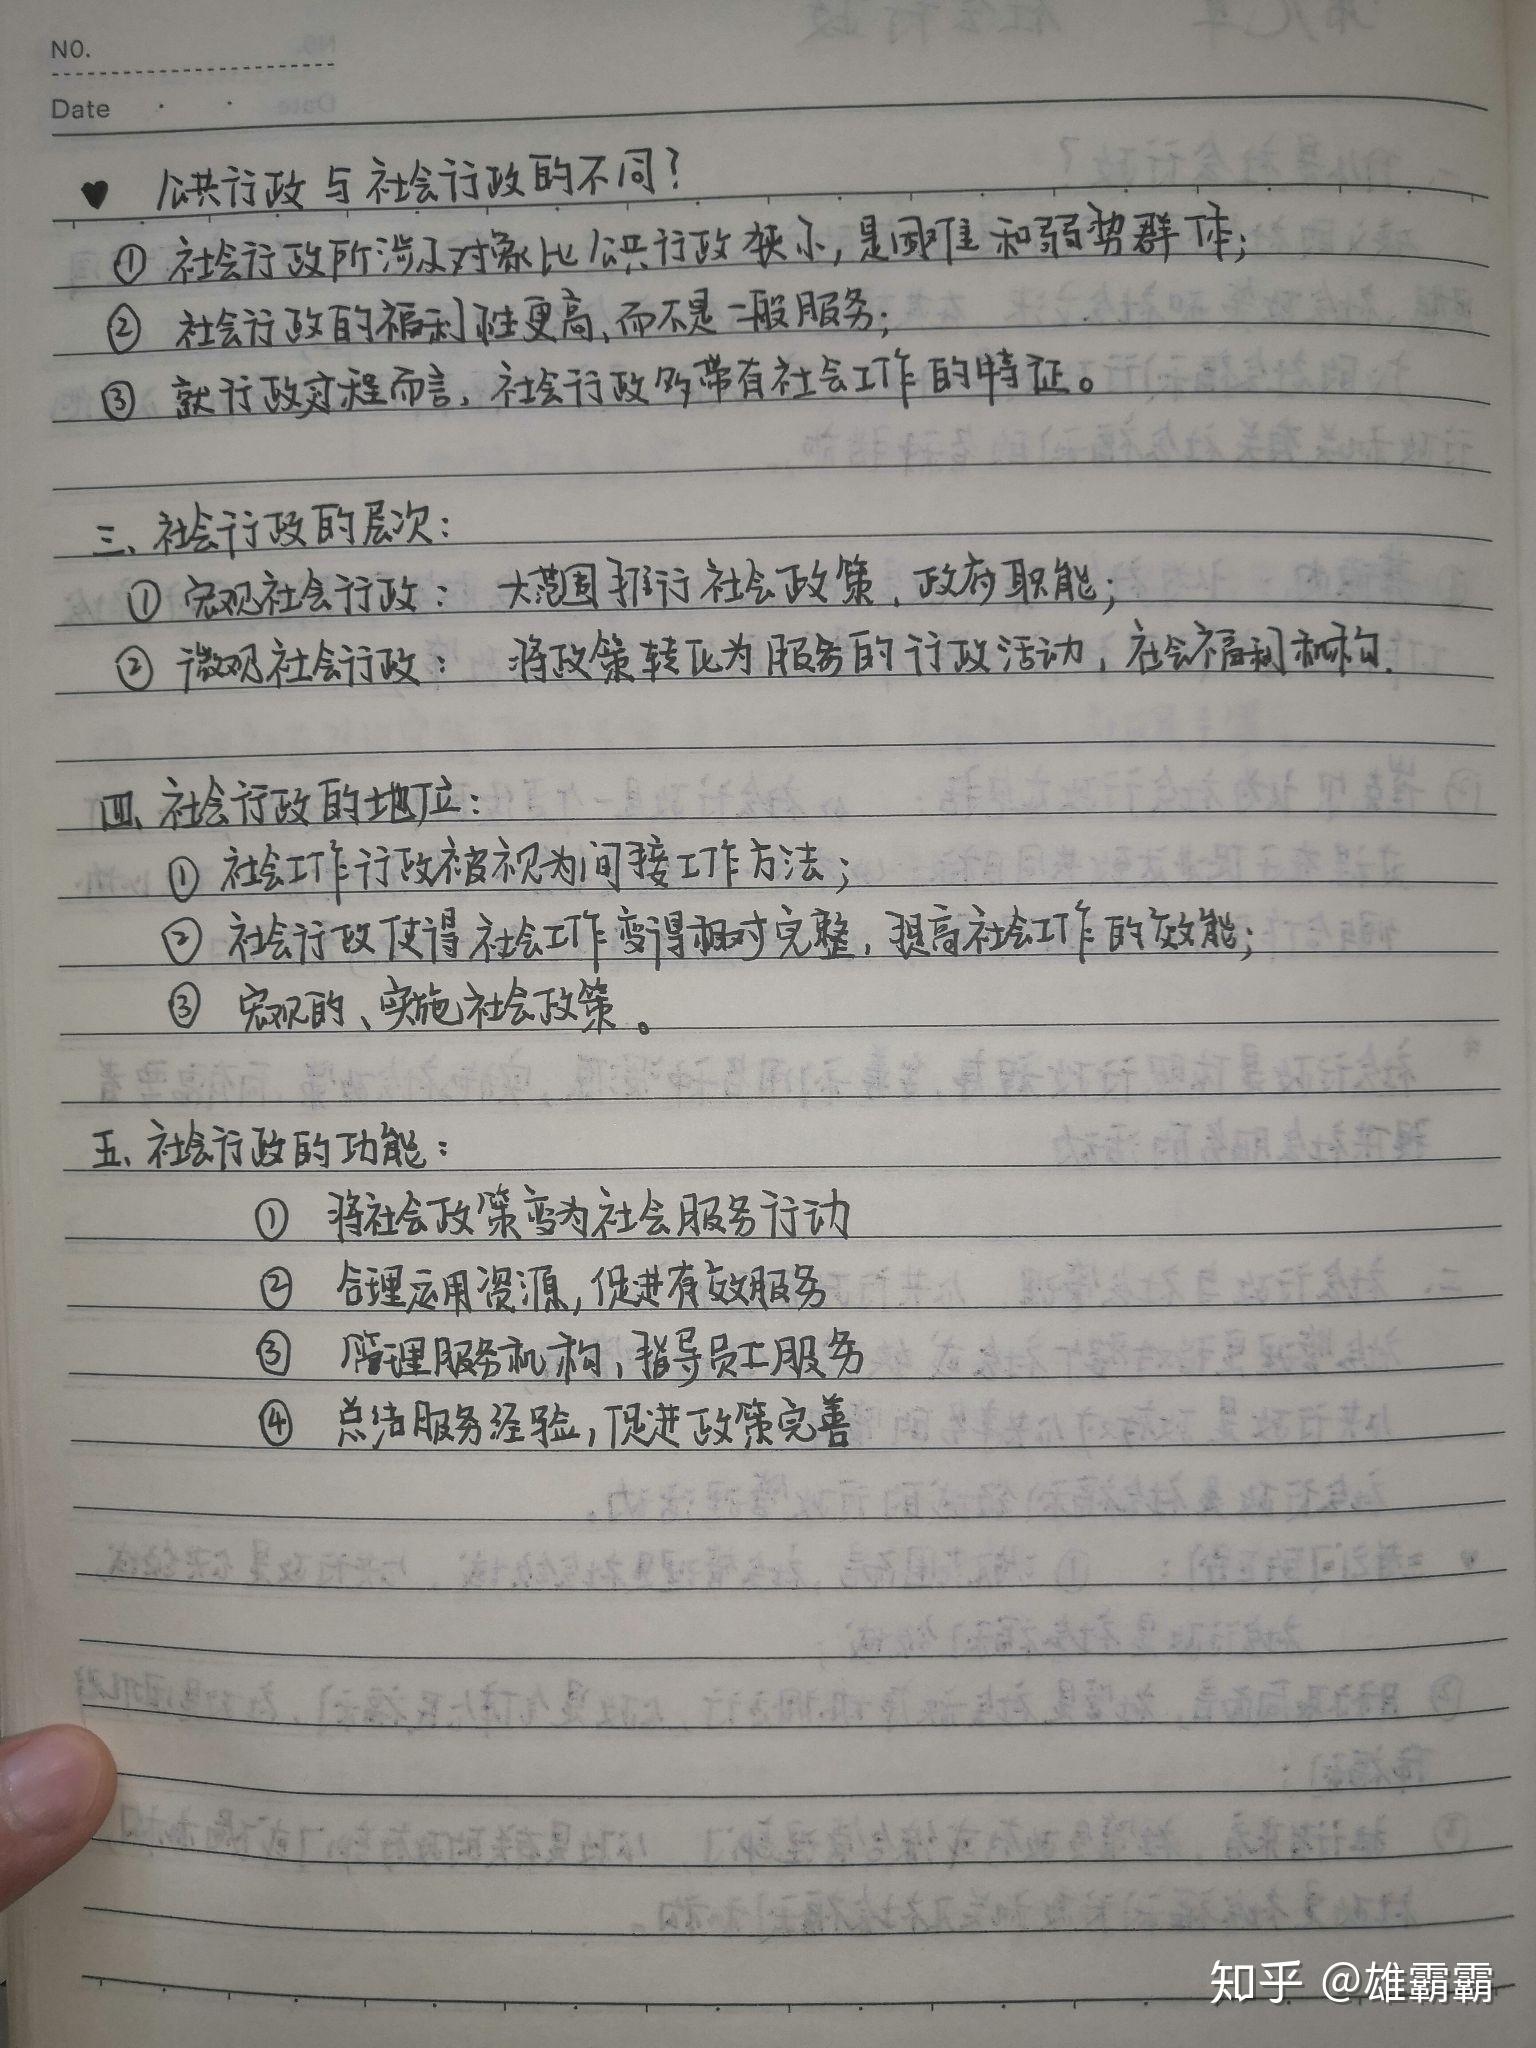 NO.
Date
♥ 公共行政与社会行政的不同?
① 社会行政所涉及对象比公共行政狭小,是困难和弱势群体;
② 社会行政的福利性更高,而不是一般服务;
③ 就行政过程而言,社会行政多带有社会工作的特征。
三、社会行政的层次:
① 宏观社会行政: 大范围推行社会政策、政府职能;
② 微观社会行政: 将政策转化为服务的行政活动,社会福利机构.
四、社会行政的地位:
① 社会工作行政被视为间接工作方法;
② 社会行政使得社会工作变得相对完整,提高社会工作的效能;
③ 宏观的、实施社会政策。
五、社会行政的功能:
① 将社会政策变为社会服务行动
② 合理运用资源,促进有效服务
③ 管理服务机构,指导员工服务
④ 总结服务经验,促进政策完善
知乎 @雄霸霸